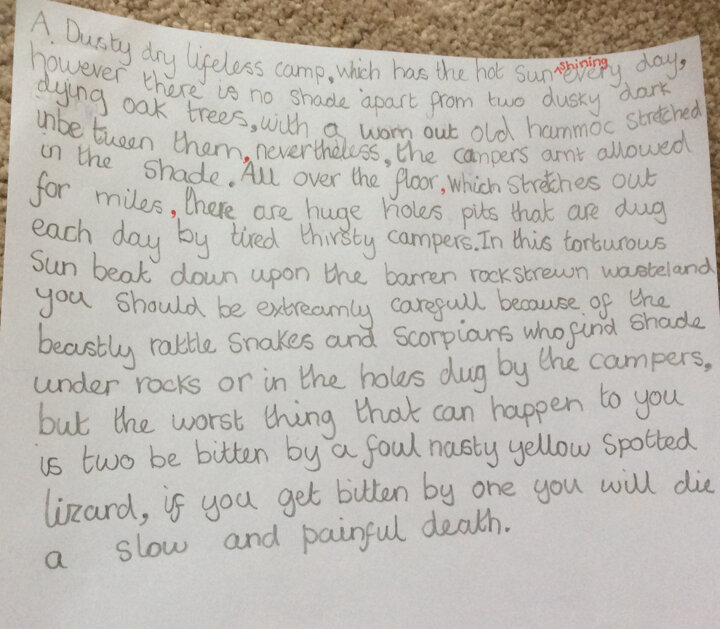 A. Dusty dry lifeless camp, which has the hot sun shining every day,
however there is no shade apart from two dusky dark
dying oak trees, with a worn out old hammoc stretched
inbe tween them, nevertheless, the campers arnt allowed
in the shade. All over the floor, which stretches out
for miles, there are huge holes pits that are dug
each day by tired thirsty campers. In this torturous
sun beat down upon the barren rockstrewn wasteland
you should be extreamly carefull because of the
beastly rattle snakes and scorpians who find shade
under rocks or in the holes dug by the campers,
but the worst thing that can happen to you
is two be bitten by a foul nasty yellow spotted
lizard, if you get bitten by one you will die
a slow and painful death.